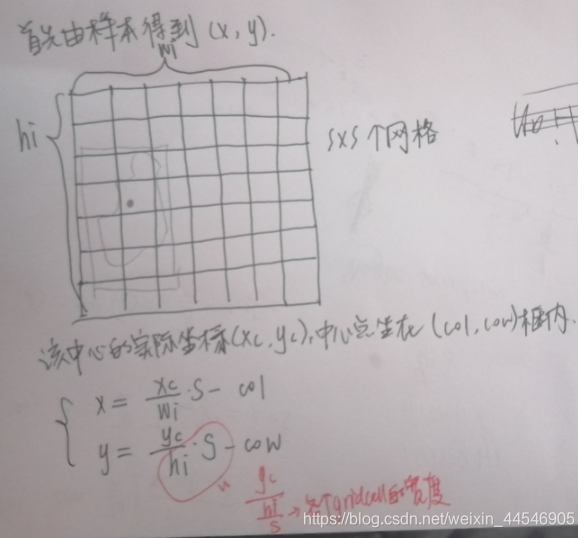 首先由样本得到 (x, y).
wi
hi
S×S个网格
该中心的实际坐标(xc, yc), 中心点坐在 (col, cow)框内.
x = xc/wi · S - col
y = yc/hi · S - cow
yc/(hi/S) → 每个gridcell的宽度
https://blog.csdn.net/weixin_44546905